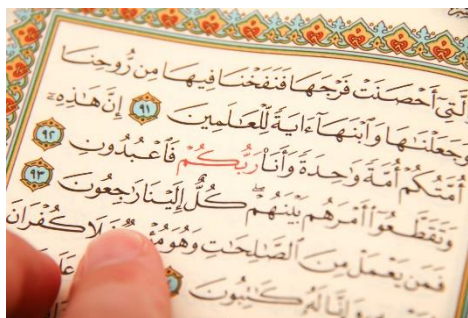 ٱلَّتِىٓ أَحْصَنَتْ فَرْجَهَا فَنَفَخْنَا فِيهَا مِن رُّوحِنَا
وَجَعَلْنَٰهَا وَٱبْنَهَآ ءَايَةً لِّلْعَٰلَمِينَ ٩١ إِنَّ هَٰذِهِۦٓ
أُمَّتُكُمْ أُمَّةً وَٰحِدَةً وَأَنَا۠ رَبُّكُمْ فَٱعْبُدُونِ ٩٢
وَتَقَطَّعُوٓا۟ أَمْرَهُم بَيْنَهُمْ ۖ كُلٌّ إِلَيْنَا رَٰجِعُونَ ٩٣
فَمَن يَعْمَلْ مِنَ ٱلصَّٰلِحَٰتِ وَهُوَ فَلَا كُفْرَانَ
وَإِنَّا لَهُۥ كَٰتِبُونَ